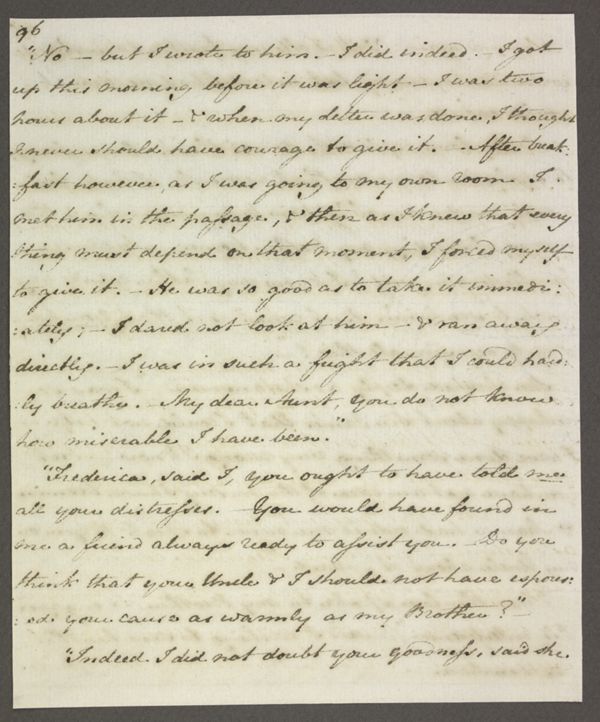 96
"No — but I wrote to him. — I did indeed. — I got
up this morning before it was light — I was two
hours about it — & when my letter was done, I thought
I never should have courage to give it. — After break:
:fast however, as I was going to my own room I
met him in the passage, & then as I knew that every
thing must depend on that moment, I forced myself
to give it. — He was so good as to take it immedi:
:ately; — I dared not look at him — & ran away
directly. — I was in such a fright that I could hard:
:ly breathe. — My dear Aunt, you do not know
how miserable I have been."
"Frederica, said I, you ought to have told me
all your distresses. — You would have found in
me a friend always ready to assist you. — Do you
think that your Uncle & I should not have espous:
:ed your cause as warmly as my Brother?" —
"Indeed I did not doubt your goodness, said she,